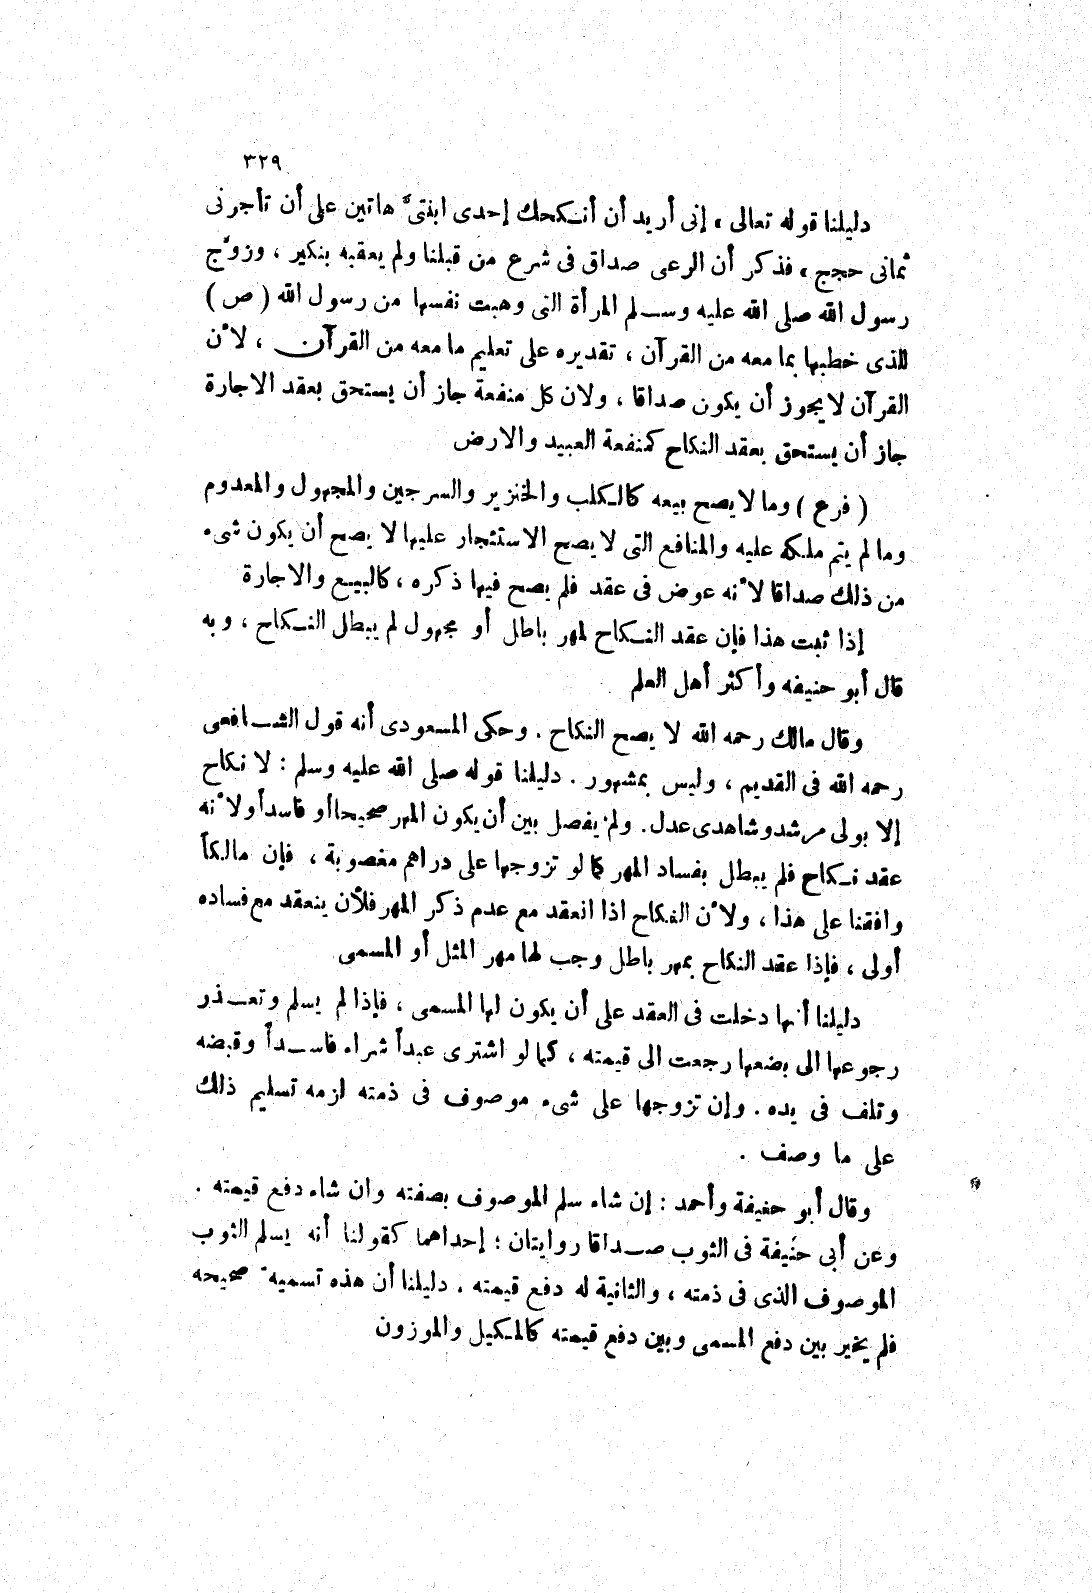 ٣٢٩
دليلنا قوله تعالى « إنى أريد أن أنكحك إحدى ابنتىّ هاتين على أن تأجرنى
ثمانى حجج » فذكر أن الرعى صداق فى شرع من قبلنا ولم يعقبه بنكير ، وزوّج
رسول الله صلى الله عليه وسلم المرأة التى وهبت نفسها من رسول الله ( ص )
للذى خطبها بما معه من القرآن ، تقديره على تعليم ما معه من القرآن ، لأن
القرآن لا يجوز أن يكون صداقا ، ولان كل منفعة جاز أن يستحق بعقد الاجارة
جاز أن يستحق بعقد النكاح كمنفعة العبيد والارض
( فرع ) وما لا يصح بيعه كالكلب والخنزير والسرجين والمجهول والمعدوم
وما لم يتم ملكه عليه والمنافع التى لا يصح الاستئجار عليها لا يصح أن يكون شىء
من ذلك صداقا لأنه عوض فى عقد فلم يصح فيها ذكره ، كالبيع والاجارة
إذا ثبت هذا فإن عقد النكاح لمهر باطل أو مجهول لم يبطل النكاح ، وبه
قال أبو حنيفه وأكثر أهل العلم
وقال مالك رحمه الله لا يصح النكاح . وحكى المسعودى أنه قول الشافعى
رحمه الله فى القديم ، وليس بمشهور . دليلنا قوله صلى الله عليه وسلم : لا نكاح
إلا بولى مرشد وشاهدى عدل. ولم يفصل بين أن يكون المهر صحيحا أو فاسداً ولأنه
عقد نكاح فلم يبطل بفساد المهر كما لو تزوجها على دراهم مغصوبة ، فإن مالكاً
وافقنا على هذا ، ولأن النكاح اذا انعقد مع عدم ذكر المهر فلأن ينعقد مع فساده
أولى ، فإذا عقد النكاح بمهر باطل وجب لها مهر المثل أو المسمى
دليلنا أنها دخلت فى العقد على أن يكون لها المسمى ، فإذا لم يسلم وتعذر
رجوعها الى بضعها رجعت الى قيمته ، كما لو اشترى عبداً شراء فاسداً وقبضه
وتلف فى يده . وإن تزوجها على شىء موصوف فى ذمته لزمه تسليم ذلك
على ما وصف .
وقال أبو حنيفة وأحمد : إن شاء سلم الموصوف بصفته وان شاء دفع قيمته .
وعن أبى حنيفة فى الثوب صداقا روايتان ؛ إحداهما كقولنا أنه يسلم الثوب
الموصوف الذى فى ذمته ، والثانية له دفع قيمته . دليلنا أن هذه تسميه صحيحه
فلم يخير بين دفع المسمى وبين دفع قيمته كالمكيل والموزون